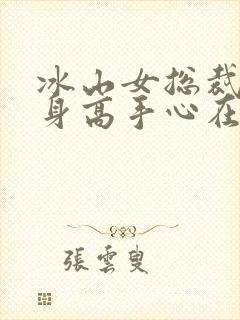 冰山女总裁
身高手心在
張雲叟